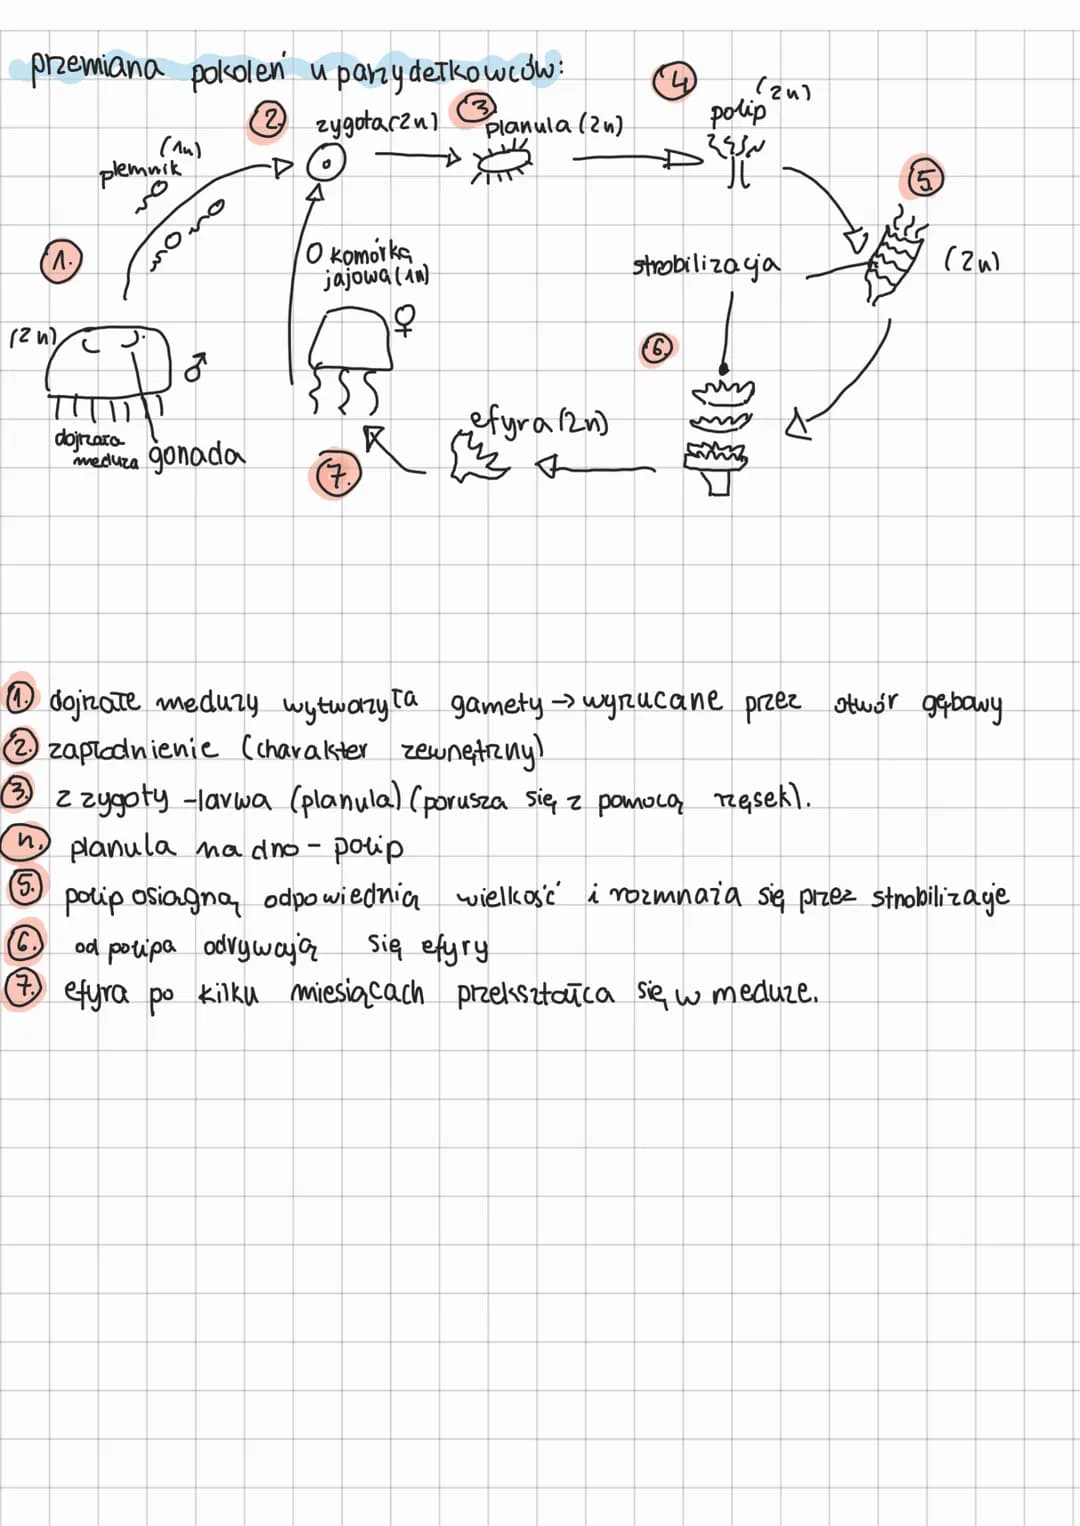 przemiana pokoleń u parzydełkowców:
4
(2n)
polip
2.
zygota(2n)
3
planula (2n)
(1n)
plemnik
5.
1.
0 komórka
jajowa (1n)
strobilizacja
(2n)
(2n)
♀
♂
6.
efyra (2n)
dojrzała
meduza
gonada
7.
1. dojrzałe meduzy wytworzyła gamety → wyrzucane przez otwór gębowy
2. zapłodnienie (charakter zewnętrzny)
3. z zygoty - larwa (planula) (porusza się z pomocą rzęsek).
4. planula na dno - polip
5. polip osiągną odpowiednią wielkość i rozmnaża się przez strobilizaje
6. od polipa odrywają się efyry
7. efyra po kilku miesiącach przekształca się w meduze.